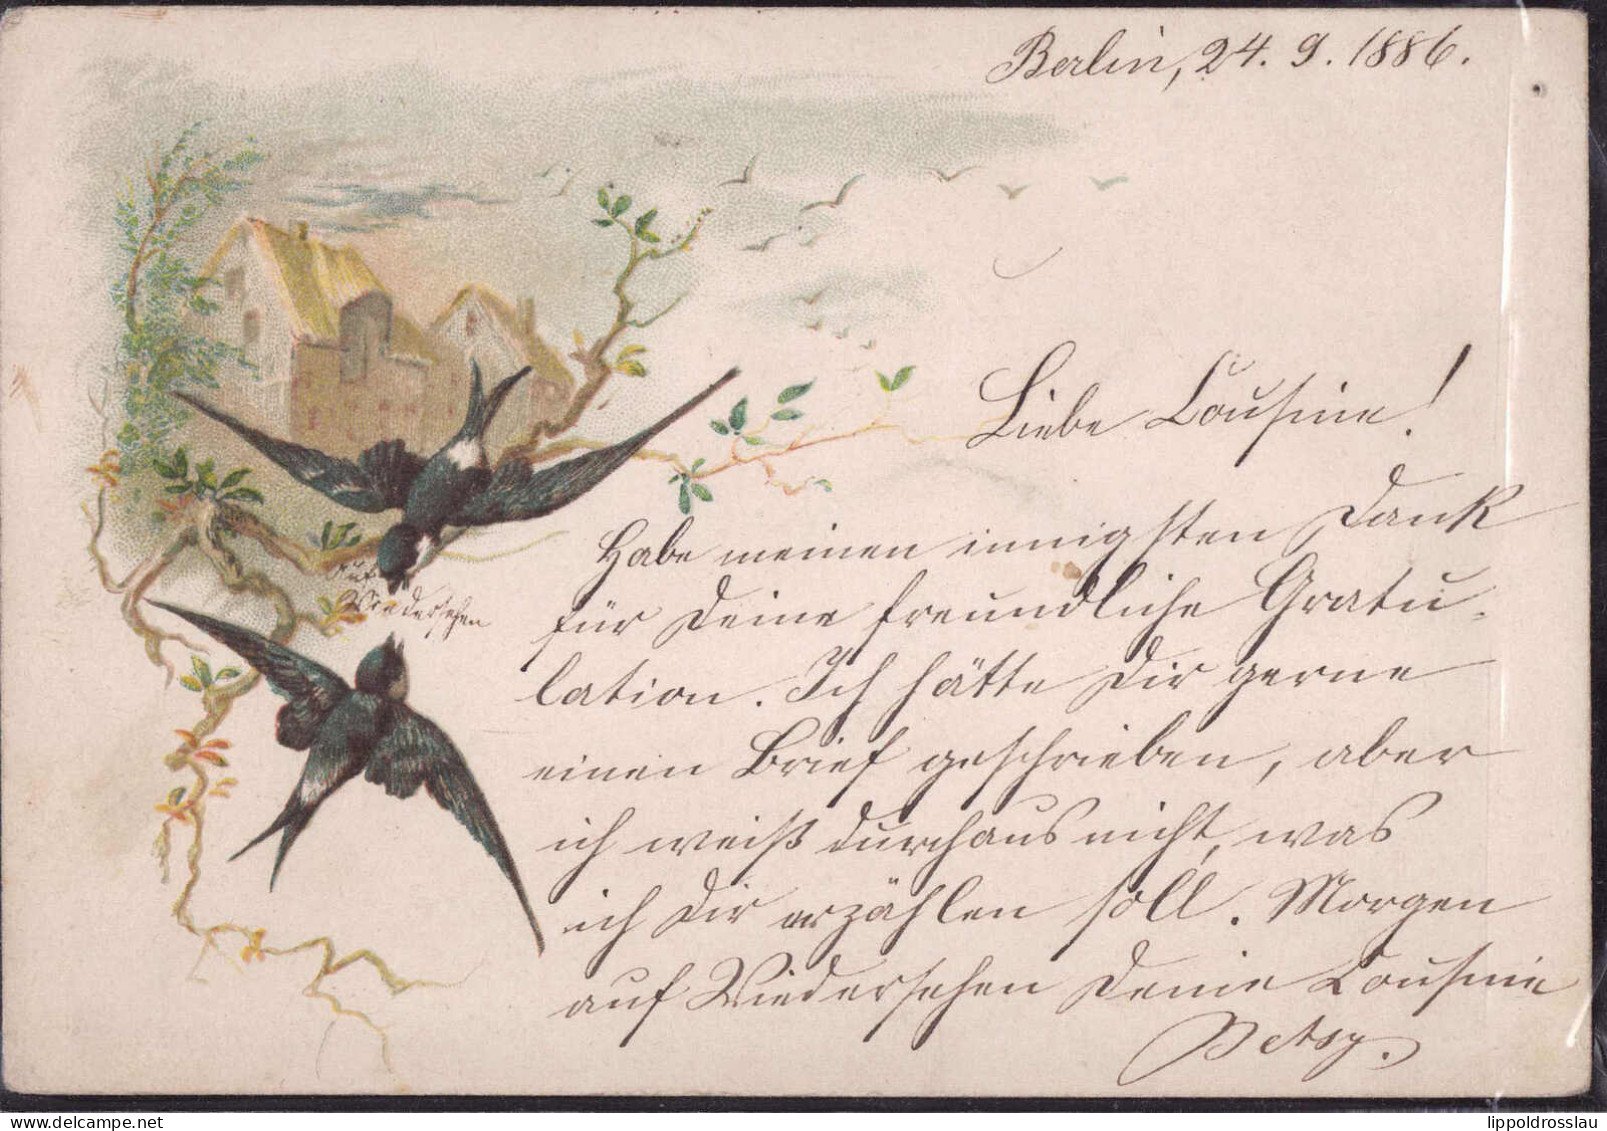 Berlin, 24. 9. 1886.
Liebe Cousine!
Habe meinen innigsten Dank
für Deine freundliche Gratu-
lation. Ich hätte Dir gerne
einen Brief geschrieben, aber
ich weiß durchaus nicht, was
ich Dir erzählen soll. Morgen
auf Wiedersehen Deine Cousine
Betsy.
Auf
Wiedersehen
lippoldrosslau